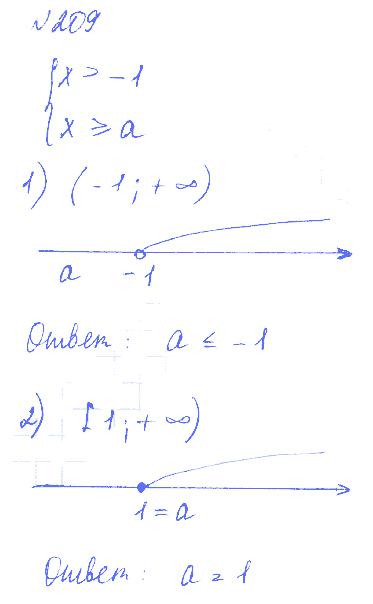 №209
{x > -1
{x ≥ a
1) (-1; +∞)
a -1
Ответ: a ≤ -1
2) [1; +∞)
1 = a
Ответ: a = 1